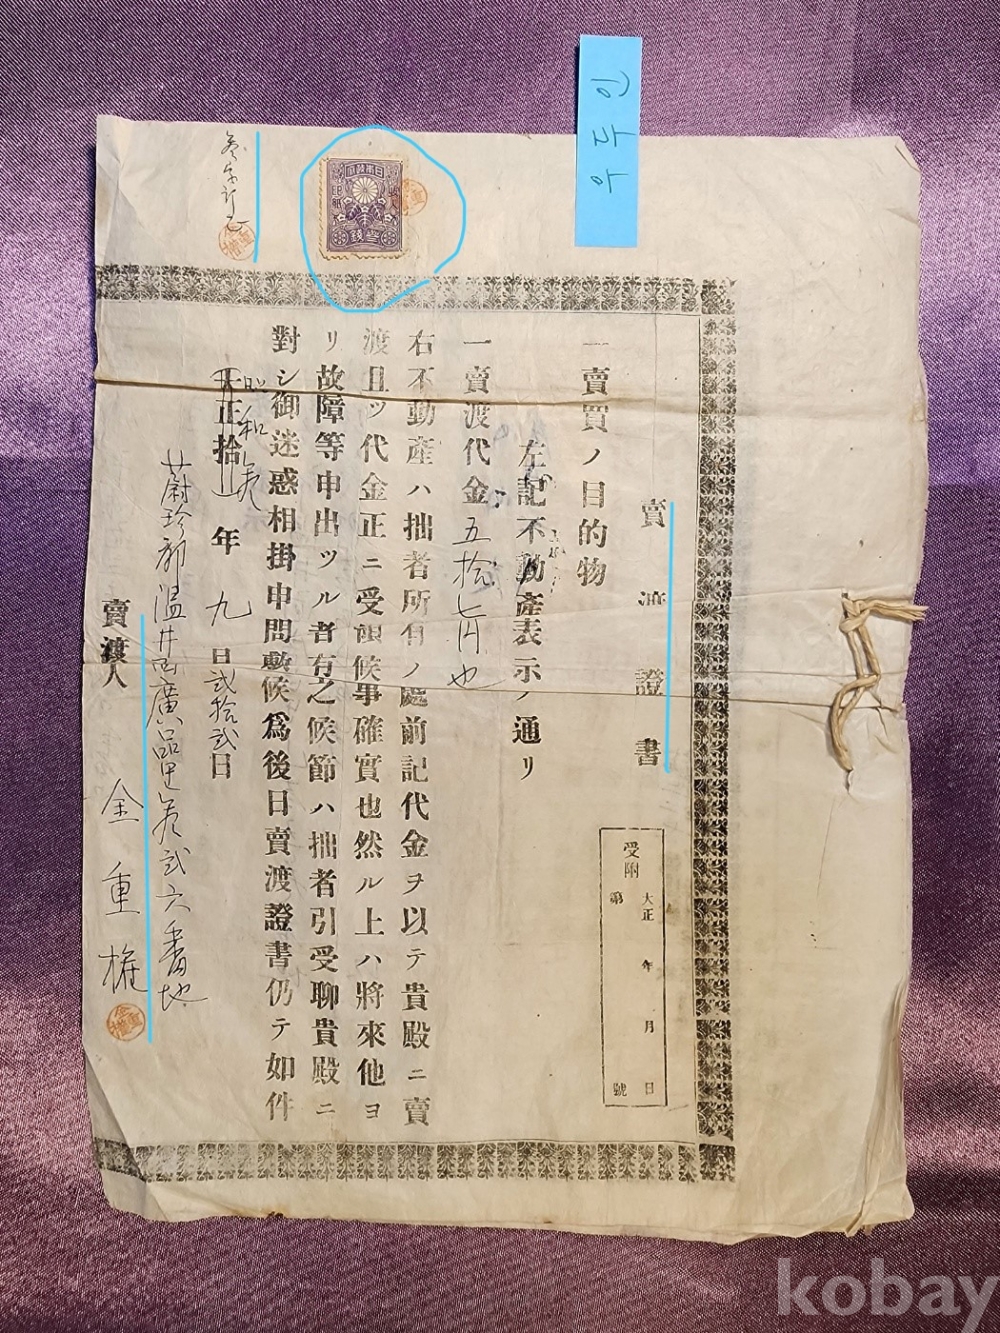 우파인
賣渡證書
受附
大正 年 月 日
第 號
一賣買ノ目的物
左記不動產表示ノ通リ
一賣渡代金五拾七円也
右不動產ハ拙者所有ノ處前記代金ヲ以テ貴殿ニ賣
渡且ツ代金正ニ受領候事確實也然ル上ハ將來他ヨ
リ故障等申出ツル者有之候節ハ拙者引受聊貴殿ニ
對シ御迷惑相掛申間敷候為後日賣渡證書仍テ如件
大正拾
昭和 年九月弐拾弐日
蔚珍郡温井面廣品里 弐六番地
賣渡人 金重權
日本帝國政府
收入印紙
參錢
kobay